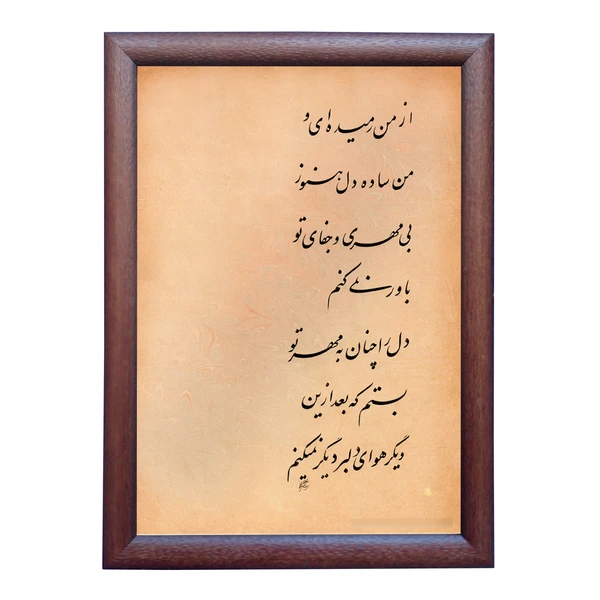 از من رمیده ای و
من ساده دل هنوز
بی مهری و جفای تو
باور نمی کنم
دل را چنان به مهر تو
بستم که بعد ازین
دیگر هوای دلبر دیگر نمیکنم